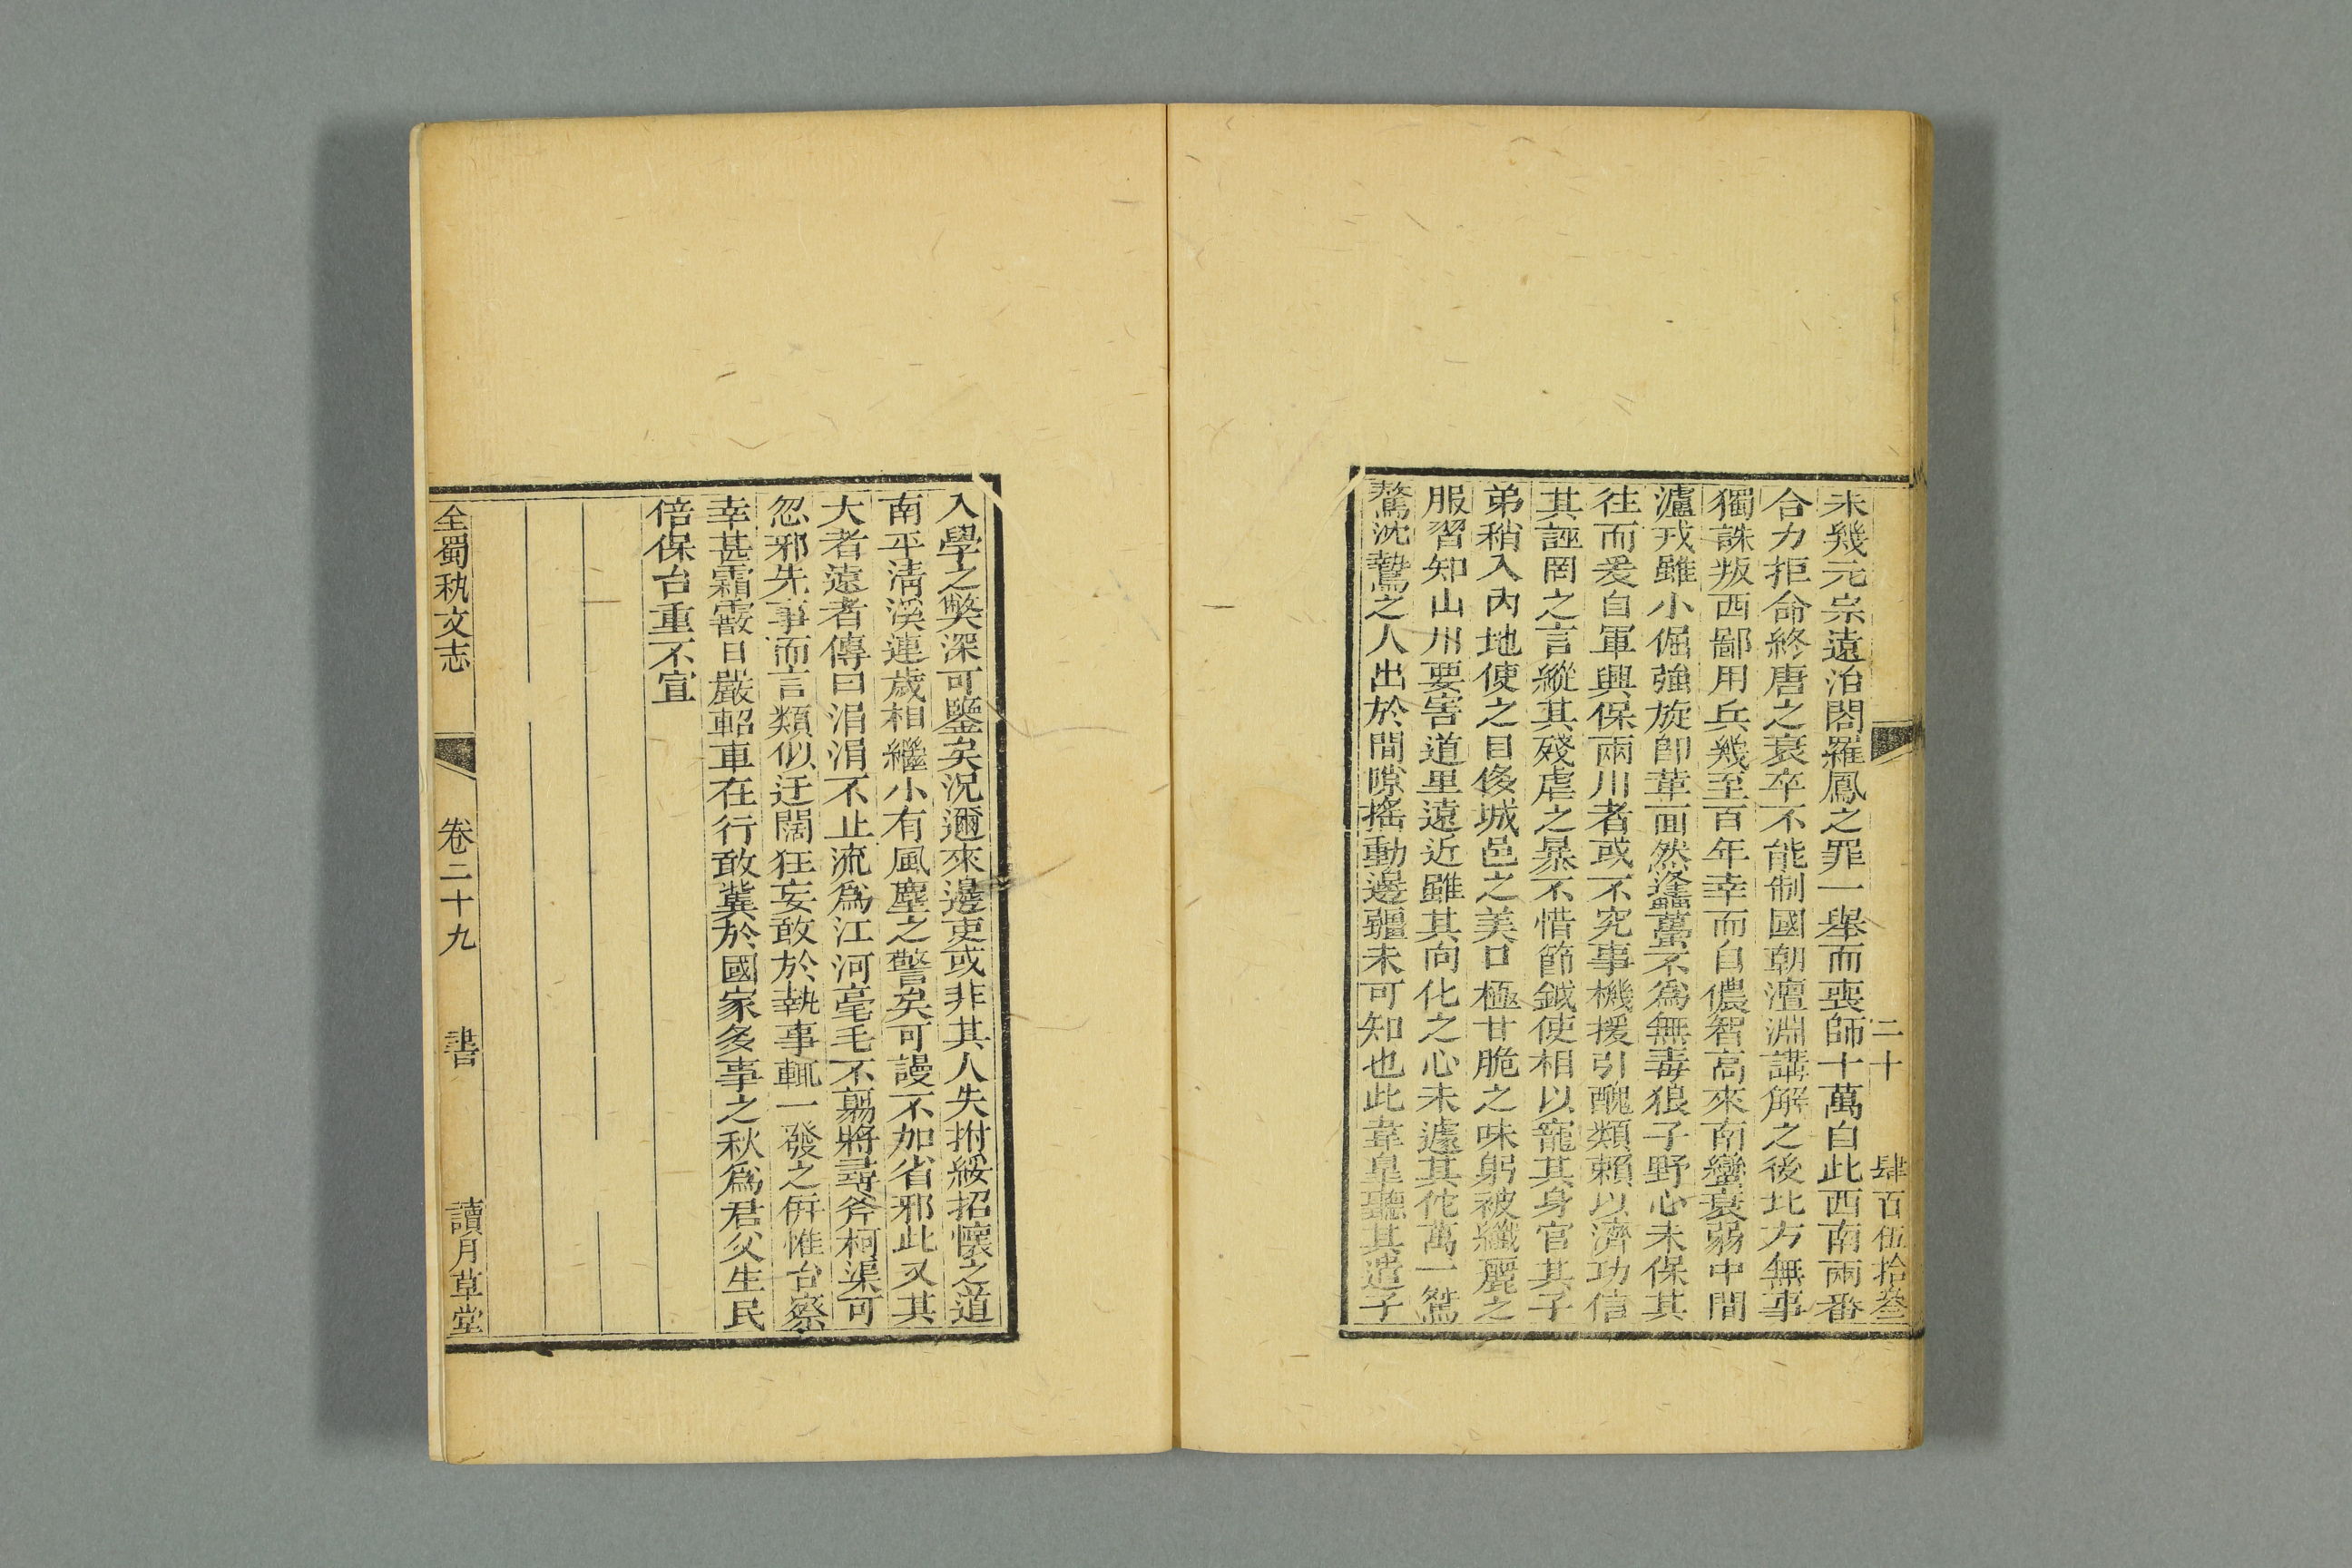 二十　肆百伍拾叁
未幾元宗遠治閤羅鳳之罪一舉而喪師十萬自此西南兩番
合力拒命終唐之衰卒不能制國朝澶淵講解之後北方無事
獨誅叛西鄙用兵幾至百年幸而自儂智高來南蠻衰弱中間
瀘戎雖小倔強旋卽革面然逢蠆不爲無毒狼子野心未保其
往而爰自軍興保兩川者或不究事機援引醜類賴以濟功信
其誣罔之言縱其殘虐之暴不惜節鉞使相以寵其身官其子
弟稍入內地使之目倐城邑之美口極甘脆之味躬被纖麗之
服習知山川要害道里遠近雖其向化之心未遽其佗萬一鴑
驁沈鷙之人出於間隙搖動邊疆未可知也此韋皐聽其遣子
入學之獘深可鑒矣況邇來邊吏或非其人失拊綏招懷之道
南平淸溪連歲相繼小有風塵之警矣可謾不加省邪此又其
大者遠者傳曰涓涓不止流爲江河毫毛不剪將尋斧柯渠可
忽邪先事而言類似迂闊狂妄敢於執事輒一發之併惟台察
幸甚霜霰日嚴軺車在行敢冀於國家多事之秋爲君父生民
倍保台重不宣
全蜀秇文志　卷二十九　書　讀月草堂